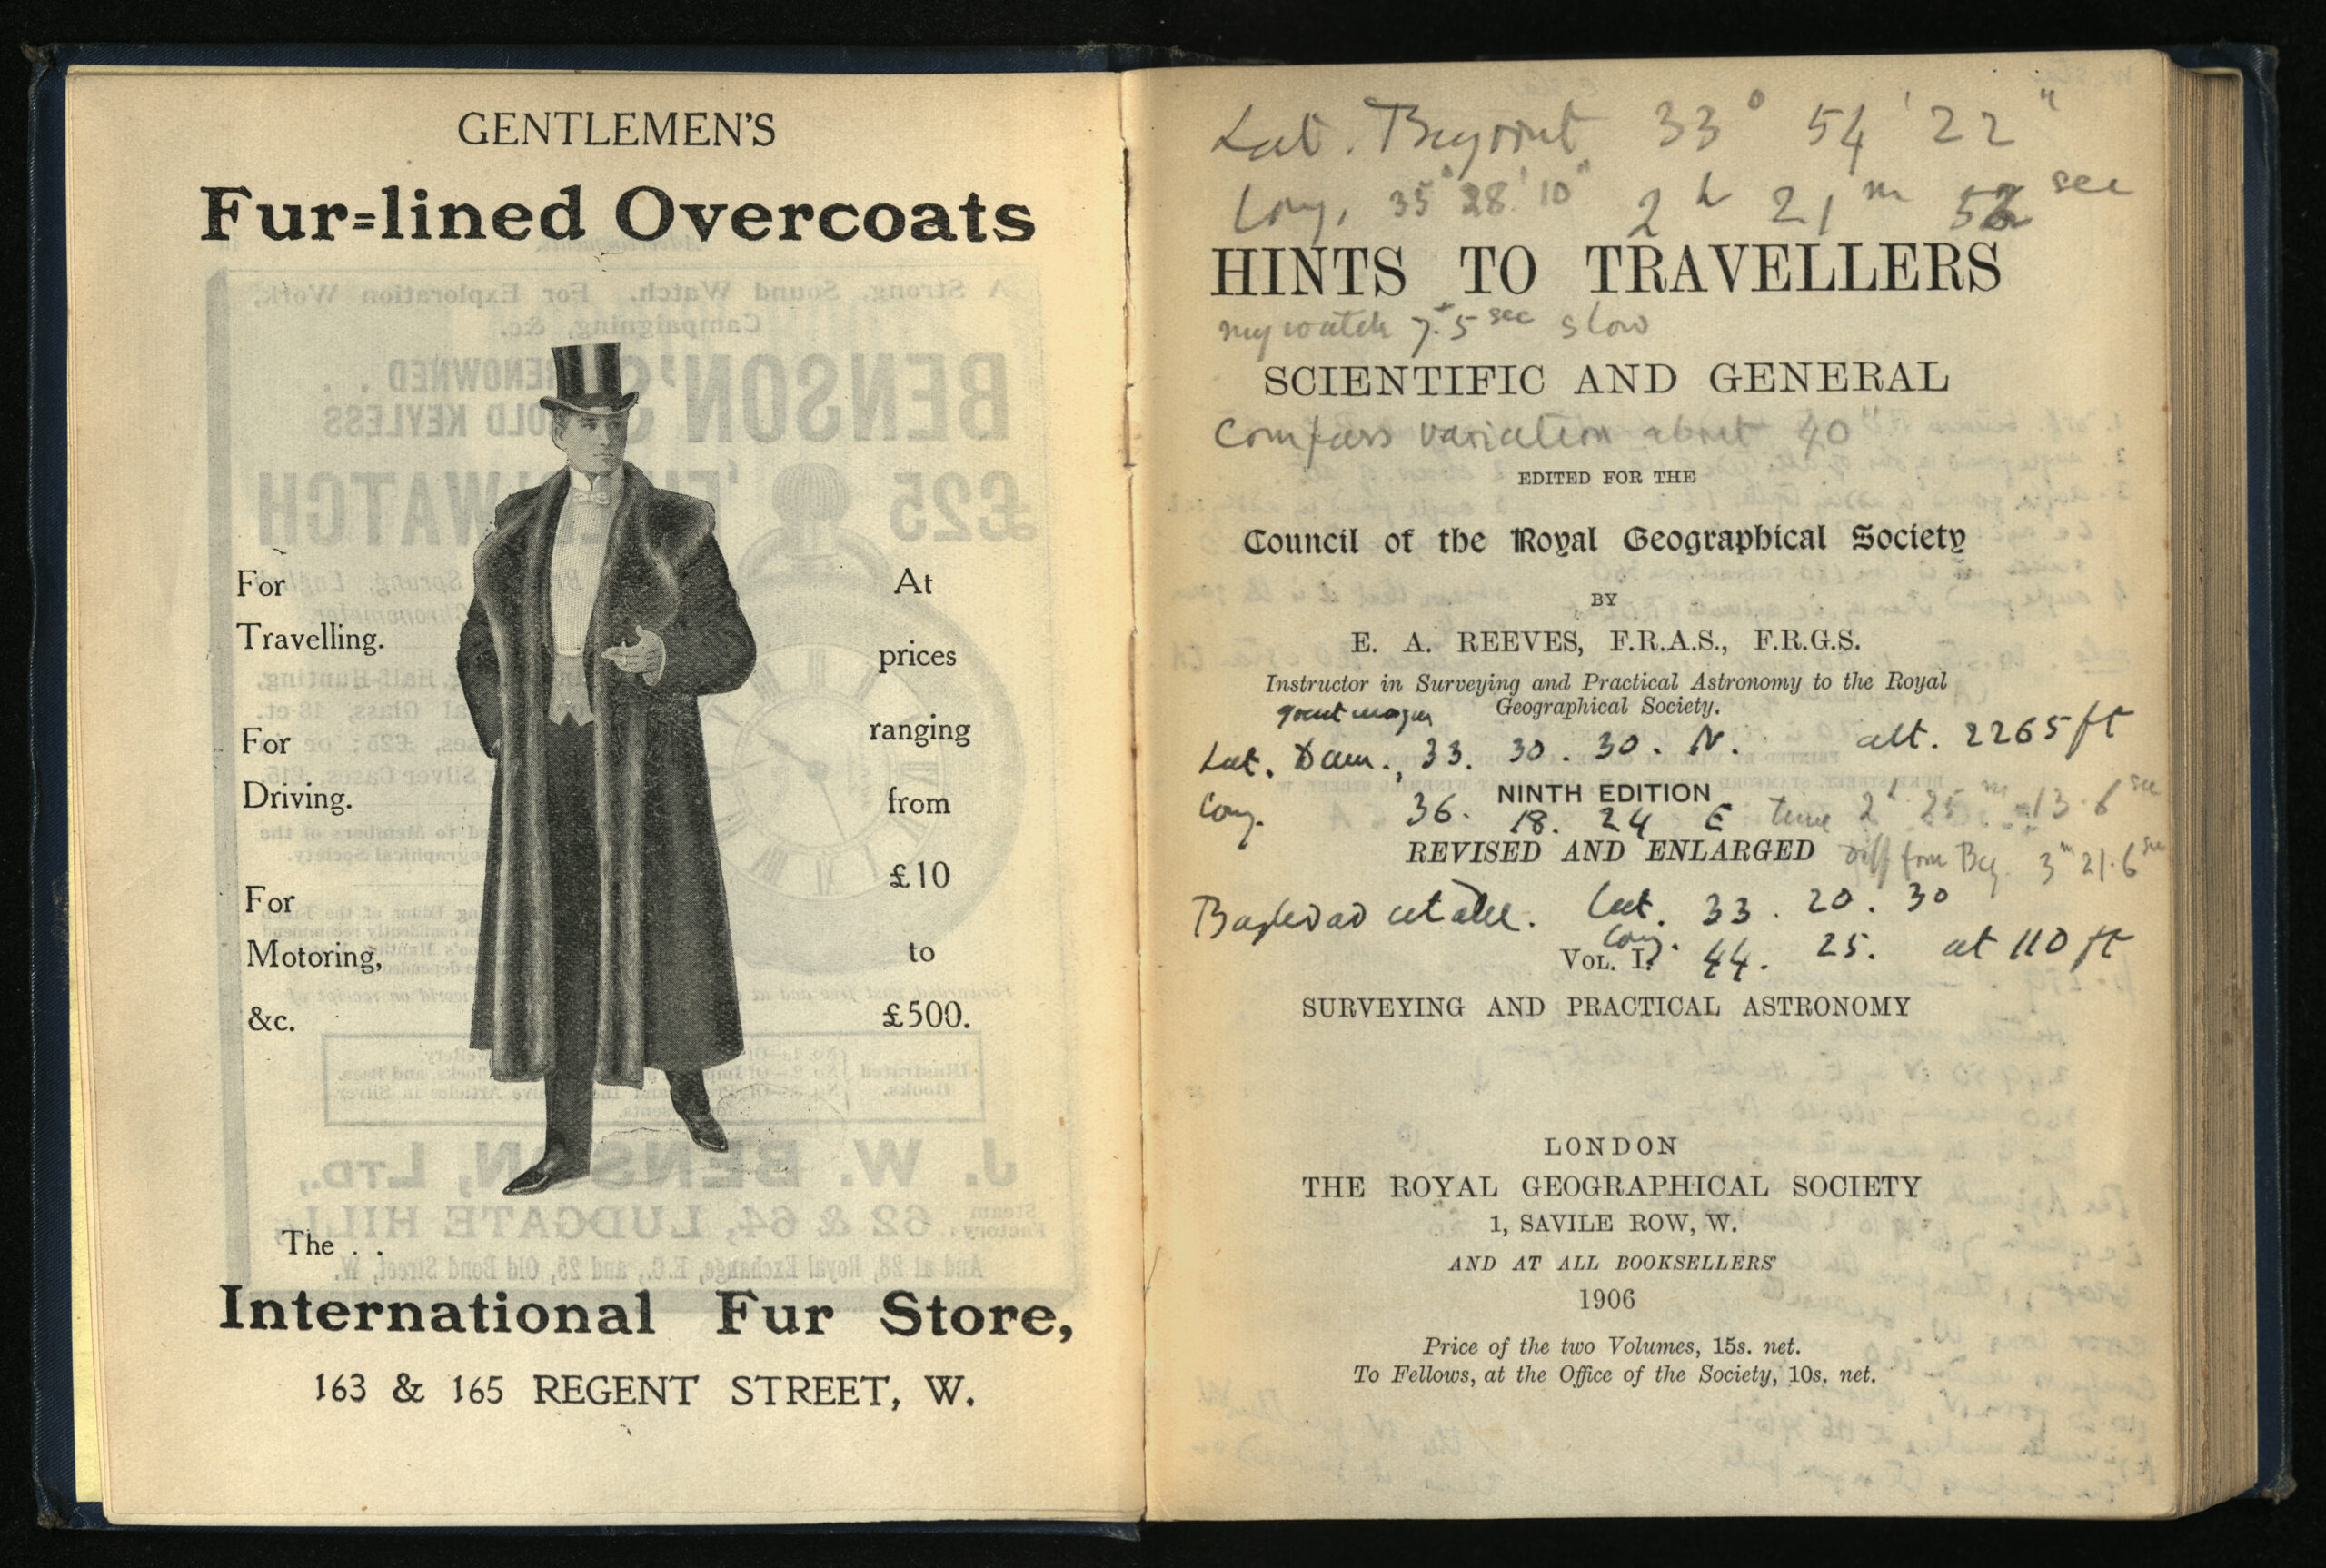 GENTLEMEN'S
Fur=lined Overcoats
For
Travelling.
For
Driving.
For
Motoring,
&c.
At
prices
ranging
from
£10
to
£500.
The . .
International Fur Store,
163 & 165 REGENT STREET, W.
Lat. Beyrout 33° 54' 22"
Long. 35° 28' 10" 2h 21m 52 sec
HINTS TO TRAVELLERS
my watch 7.5 sec slow
SCIENTIFIC AND GENERAL
Compass variation about 40"
EDITED FOR THE
Council of the Royal Geographical Society
BY
E. A. REEVES, F.R.A.S., F.R.G.S.
Instructor in Surveying and Practical Astronomy to the Royal
Geographical Society.
great mosque
Lat. Dam., 33. 30. 30. N. alt. 2265 ft
NINTH EDITION
Long. 36. 18. 24 E time 2h 25m 13.6 sec
REVISED AND ENLARGED
Diff from Bey. 3m 21.6 sec
Baghdad Lat. 33. 20. 30
Long. 44. 25. at 110 ft
VOL. I.
SURVEYING AND PRACTICAL ASTRONOMY
LONDON
THE ROYAL GEOGRAPHICAL SOCIETY
1, SAVILE ROW, W.
AND AT ALL BOOKSELLERS
1906
Price of the two Volumes, 15s. net.
To Fellows, at the Office of the Society, 10s. net.